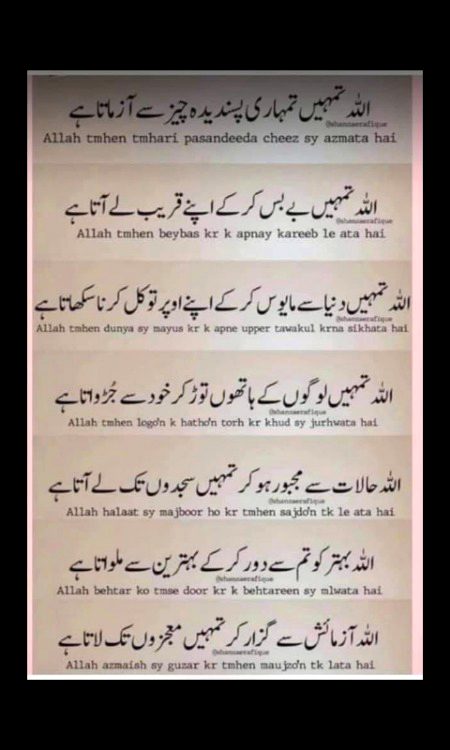 اللہ تمہیں تمہاری پسندیدہ چیز سے آزماتا ہے
@shanzaerafique
Allah tmhen tmhari pasandeeda cheez sy azmata hai
اللہ تمہیں بے بس کر کے اپنے قریب لے آتا ہے
@shanzaerafique
Allah tmhen beybas kr k apnay kareeb le ata hai
اللہ تمہیں دنیا سے مایوس کر کے اپنے اوپر توکل کرنا سکھاتا ہے
@shanzaerafique
Allah tmhen dunya sy mayus kr k apne upper tawakul krna sikhata hai
اللہ تمہیں لوگوں کے ہاتھوں توڑ کر خود سے جُڑواتا ہے
@shanzaerafique
Allah tmhen logo'n k hatho'n torh kr khud sy jurhwata hai
اللہ حالات سے مجبور ہو کر تمہیں سجدوں تک لے آتا ہے
@shanzaerafique
Allah halaat sy majboor ho kr tmhen sajdo'n tk le ata hai
اللہ بہتر کو تم سے دور کر کے بہترین سے ملواتا ہے
@shanzaerafique
Allah behtar ko tmse door kr k behtareen sy mlwata hai
اللہ آزمائش سے گزار کر تمہیں معجزوں تک لاتا ہے
@shanzaerafique
Allah azmaish sy guzar kr tmhen maujzo'n tk lata hai